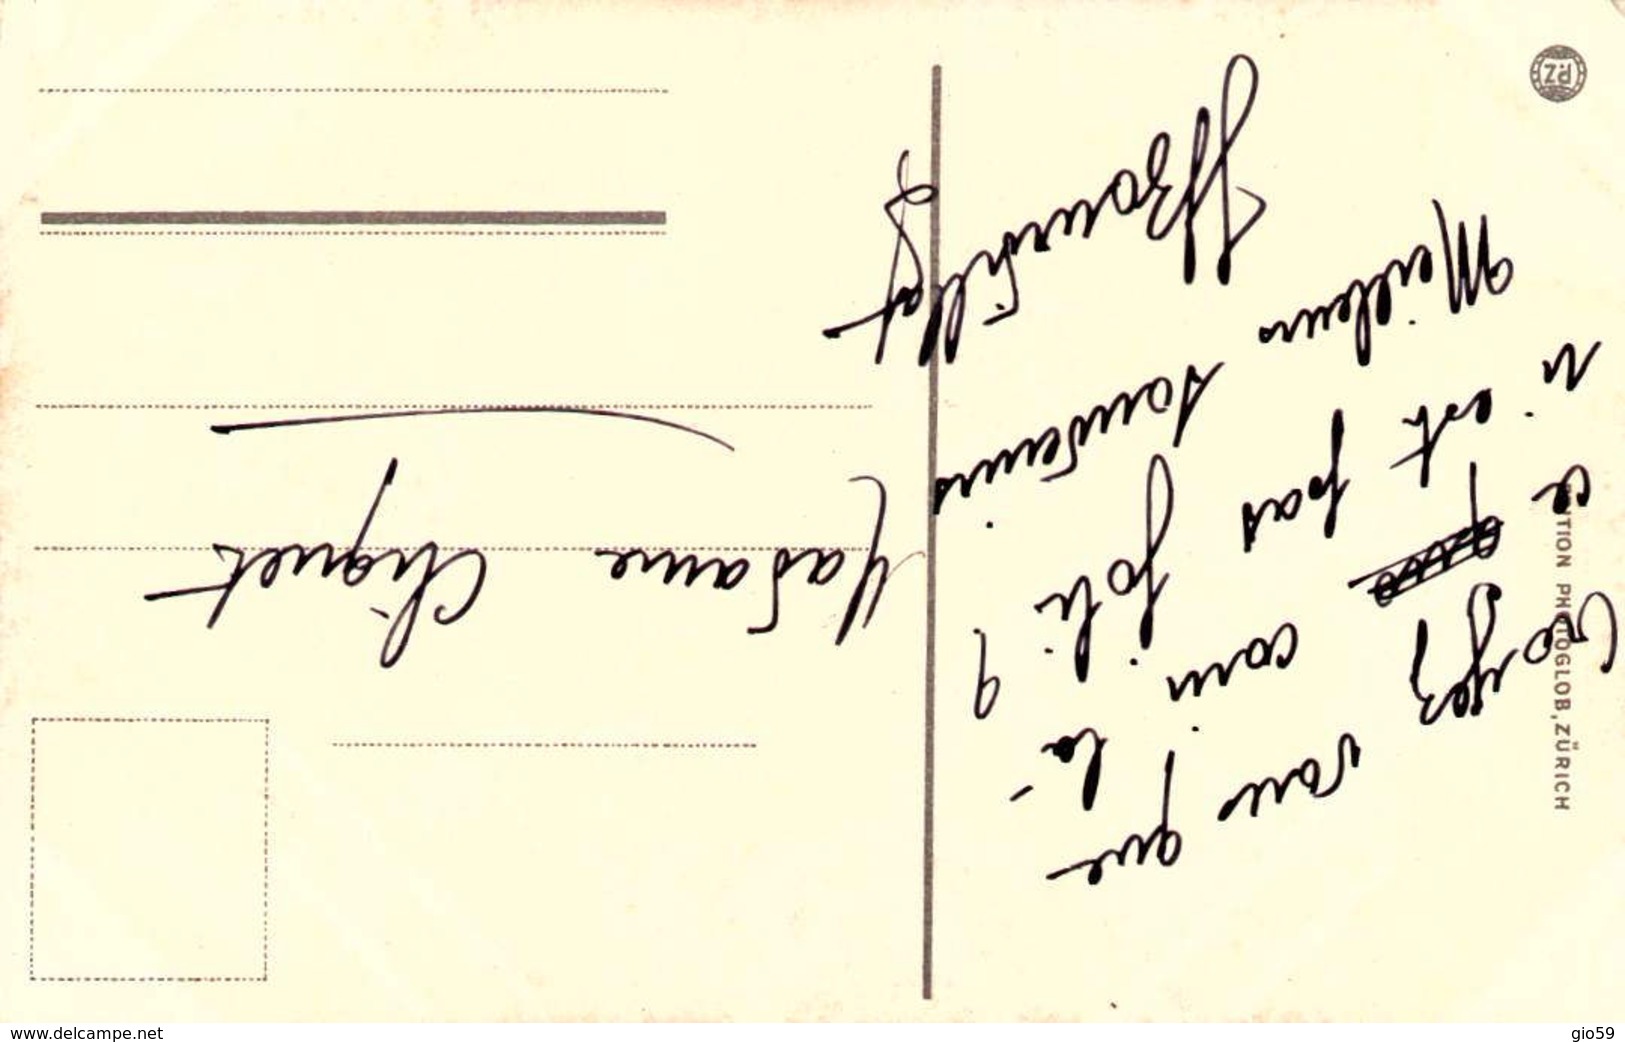 Croyez vous que
ce coin là
n'est pas joli ?
Meilleurs souvenirs
Madame Cliquet
P.Z
EDITION PHOTOGLOB, ZÜRICH
www.delcampe.net
gio59